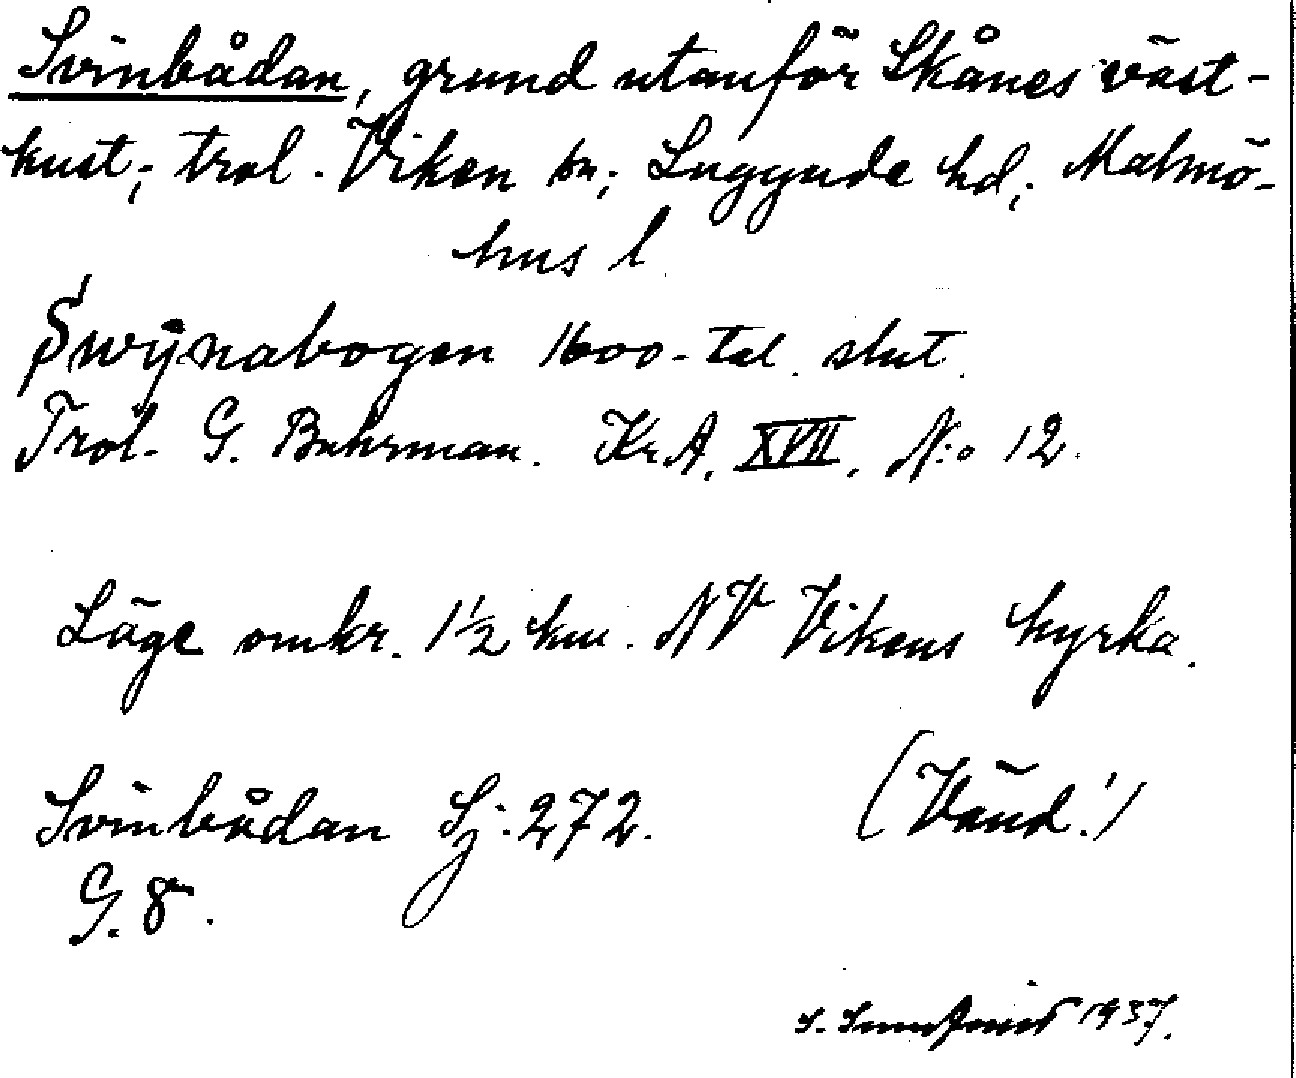 Svinbådan, grund utanför Skånes väst-
kust; trol. Viken sn; Luggude hd; Malmö-
hus l.
Swÿnabogen 1600-tal. slut.
Trol. G. Buhrman. Kr.A. XVII. N:o 12.
Läge omkr. 1 1/2 km. NV Vikens kyrka.
Svinbådan Sj. 272. (Vänd!)
G. 8.
S. 1937.